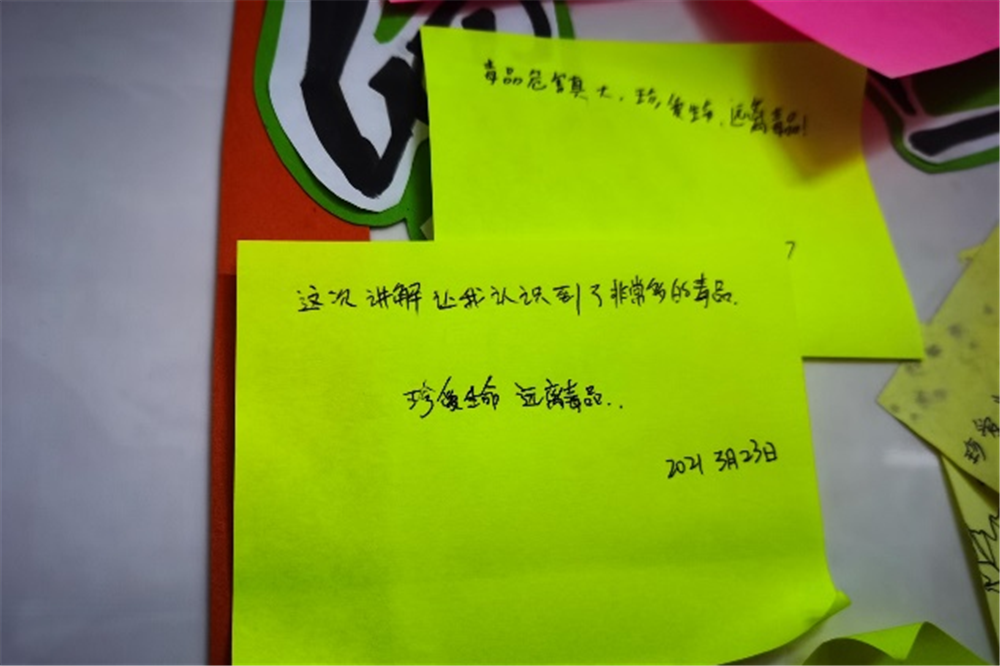 毒品危害真大，珍爱生命，远离毒品！
这次讲解让我认识到了非常多的毒品.
珍爱生命 远离毒品..
2021 3月23日
珍爱